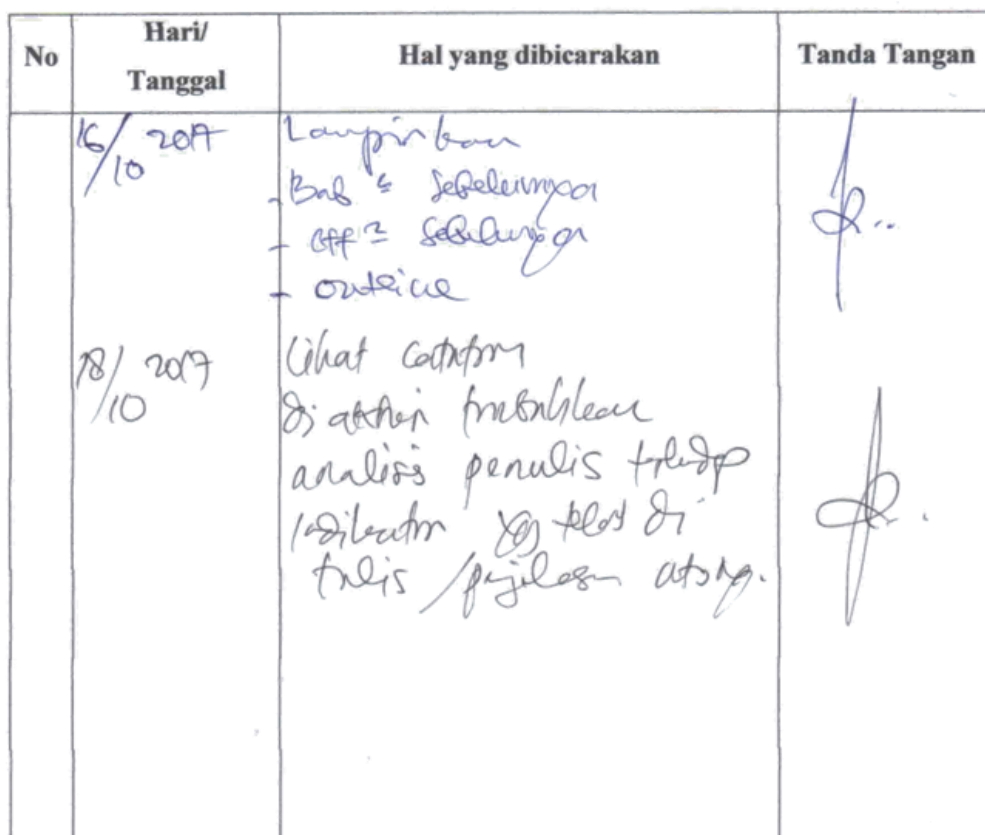 No
Hari/
Tanggal
Hal yang dibicarakan
Tanda Tangan
16/10 2017
Lampirkan
- Bab² sebelumnya
- sebelumnya
- outline
18/10 2017
Lihat catatan
di akhir tambahkan
analisis penulis terhadap
indikator yg telah di
tulis / penjelasan